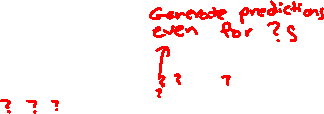 Generate predictions
even for ?s
? ? ?
?
? ? ?